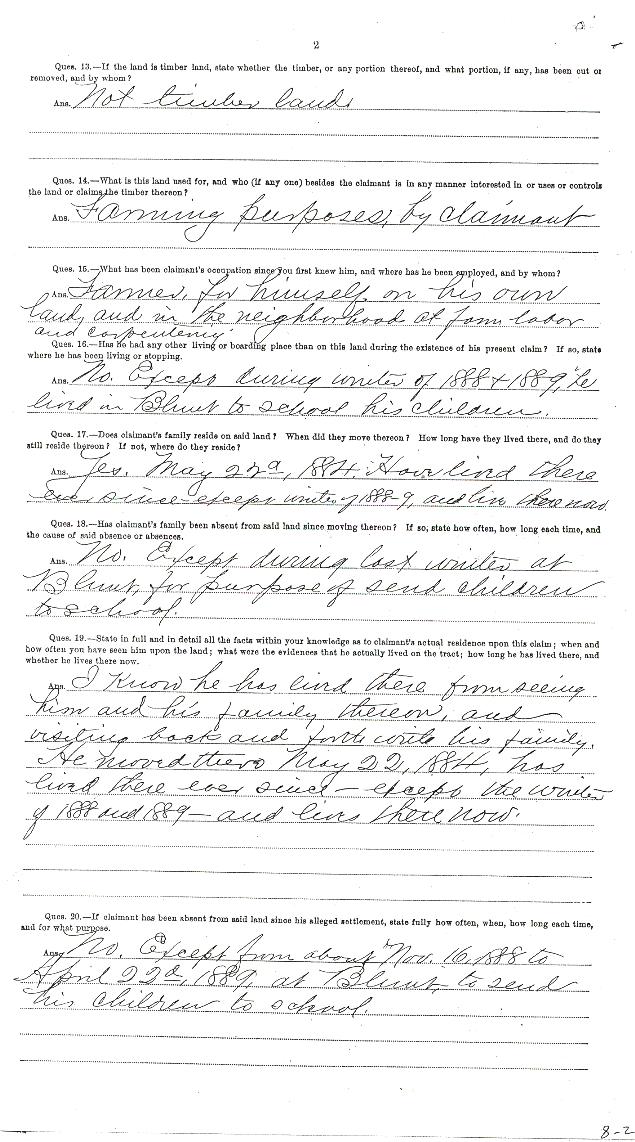 2
Ques. 13.—If the land is timber land, state whether the timber, or any portion thereof, and what portion, if any, has been cut or
removed, and by whom?
Ans. Not timber lands
Ques. 14.—What is this land used for, and who (if any one) besides the claimant is in any manner interested in or uses or controls
the land or claims the timber thereon?
Ans. Farming purposes, by claimant
Ques. 15.—What has been claimant's occupation since you first knew him, and where has he been employed, and by whom?
Ans. Farmer, for himself on his own
land, and in the neighborhood at farm labor
and carpentering.
Ques. 16.—Has he had any other living or boarding place than on this land during the existence of his present claim? If so, state
where he has been living or stopping.
Ans. No. Except during winter of 1888 & 1889, he
lived in Blunt to school his children.
Ques. 17.—Does claimant's family reside on said land? When did they move thereon? How long have they lived there, and do they
still reside thereon? If not, where do they reside?
Ans. Yes. May 22d, 1884. Have lived there
ever since except winter of 1888-9, and live there now.
Ques. 18.—Has claimant's family been absent from said land since moving thereon? If so, state how often, how long each time, and
the cause of said absence or absences.
Ans. No. Except during last winter at
Blunt, for purpose of send children
to school.
Ques. 19.—State in full and in detail all the facts within your knowledge as to claimant's actual residence upon this claim; when and
how often you have seen him upon the land; what were the evidences that he actually lived on the tract; how long he has lived there, and
whether he lives there now.
Ans. I know he has lived there from seeing
him and his family thereon, and
visiting back and forth with his family.
He moved there May 22, 1884, has
lived there ever since — except the winter
of 1888 and 1889 — and lives there now.
Ques. 20.—If claimant has been absent from said land since his alleged settlement, state fully how often, when, how long each time,
and for what purpose.
Ans. No. Except from about Nov. 16, 1888 to
April 22d, 1889, at Blunt, to send
his children to school.
8-2